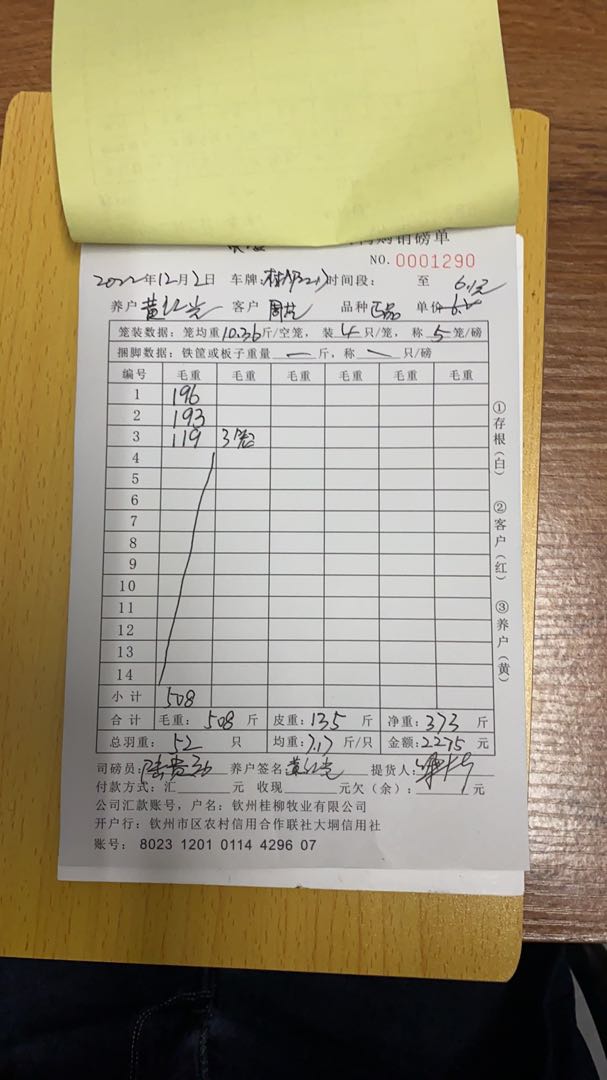 购销磅单
NO. 0001290
2022年12月2日 车牌: 时间段: 至
养户 客户 品种 正品 单价 6.1元
笼装数据: 笼均重10.36斤/空笼, 装4只/笼, 称5笼/磅
捆脚数据: 铁筐或板子重量 一 斤, 称 一 只/磅
编号 毛重 毛重 毛重 毛重 毛重 毛重
1 196
2 193
3 119 3笼
4
5
6
7
8
9
10
11
12
13
14
小计 508
合计 毛重: 508 斤 皮重: 135 斤 净重: 373 斤
总羽重: 52 只 均重: 7.17 斤/只 金额: 2275 元
司磅员: 养户签名 提货人:
付款方式: 汇 元 收现 元欠(余): 元
公司汇款账号, 户名: 钦州桂柳牧业有限公司
开户行: 钦州市区农村信用合作联社大垌信用社
账号: 8023 1201 0114 4296 07
①存根(白)
②客户(红)
③养户(黄)